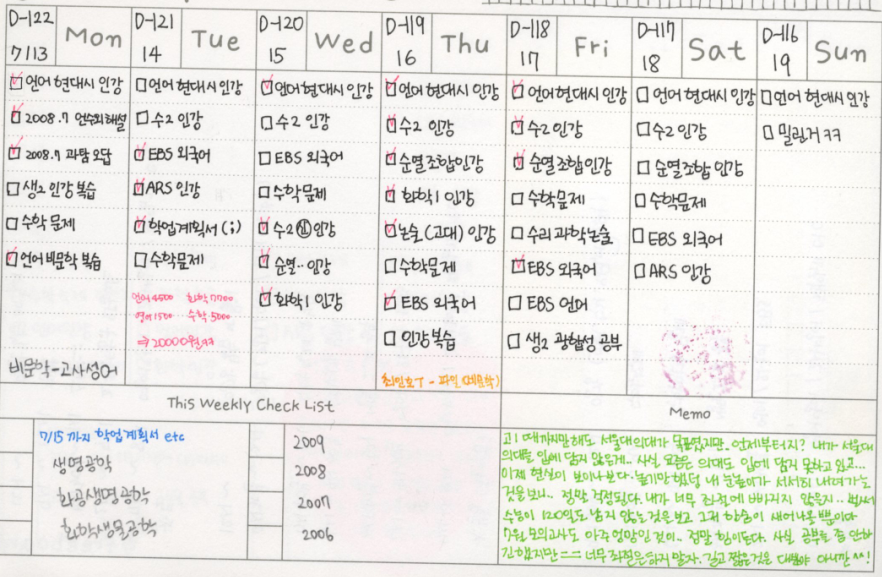 D-122
7/13 Mon
언어 현대시 인강
2008.7 언수외 해설
2008.7 과탐 오답
생2 인강 복습
수학 문제
언어 비문학 복습
비문학-고사성어
D-121
14 Tue
언어 현대시 인강
수2 인강
EBS 외국어
ARS 인강
학업계획서 (;)
수학문제
언어 4500 화학 7700
영어 1500 수학 5000
⇒ 20000원ㅋㅋ
D-120
15 Wed
언어 현대시 인강
수2 인강
EBS 외국어
수학문제
수2 인강
순열.. 인강
화학1 인강
D-119
16 Thu
언어 현대시 인강
수2 인강
순열조합인강
화학1 인강
논술 (고대) 인강
수학문제
EBS 외국어
인강 복습
최인호T - 파일
D-118
17 Fri
언어 현대시 인강
수2 인강
순열조합인강
수학문제
수리 과학논술
EBS 외국어
EBS 언어
생2 광합성 공부
D-117
18 Sat
언어 현대시 인강
수2 인강
순열조합 인강
수학문제
EBS 외국어
ARS 인강
D-116
19 Sun
언어 현대시 인강
밀린거 ㅋㅋ
This Weekly Check List
7/15 까지 학업계획서 etc
생명공학
화공생명공학
화학생물공학
2009
2008
2007
2006
Memo
고1 때까지만해도 서울대의대가 목표였지만.. 언제부터지? 내가 서울대
의대를 입에 담지 않은게.. 사실 요즘은 의대도 입에 담지 못하고 있고...
이제 현실이 보이나보다. 높기만 했던 내 눈높이가 서서히 내려가는
것을 보니.. 정말 걱정된다. 내가 너무 좌절에 빠지지 않을지.. 벌써
수능이 120일도 남지 않은 것을 보고 그저 한숨이 새어나올 뿐이다
7월 모의고사도 아주 엉망인 것이.. 정말 힘이든다. 사실 공부를 좀 안하
긴 했지만 == 너무 좌절은 하지 말자. 길고 짧은것은 대봐야 아니깐 ^^!